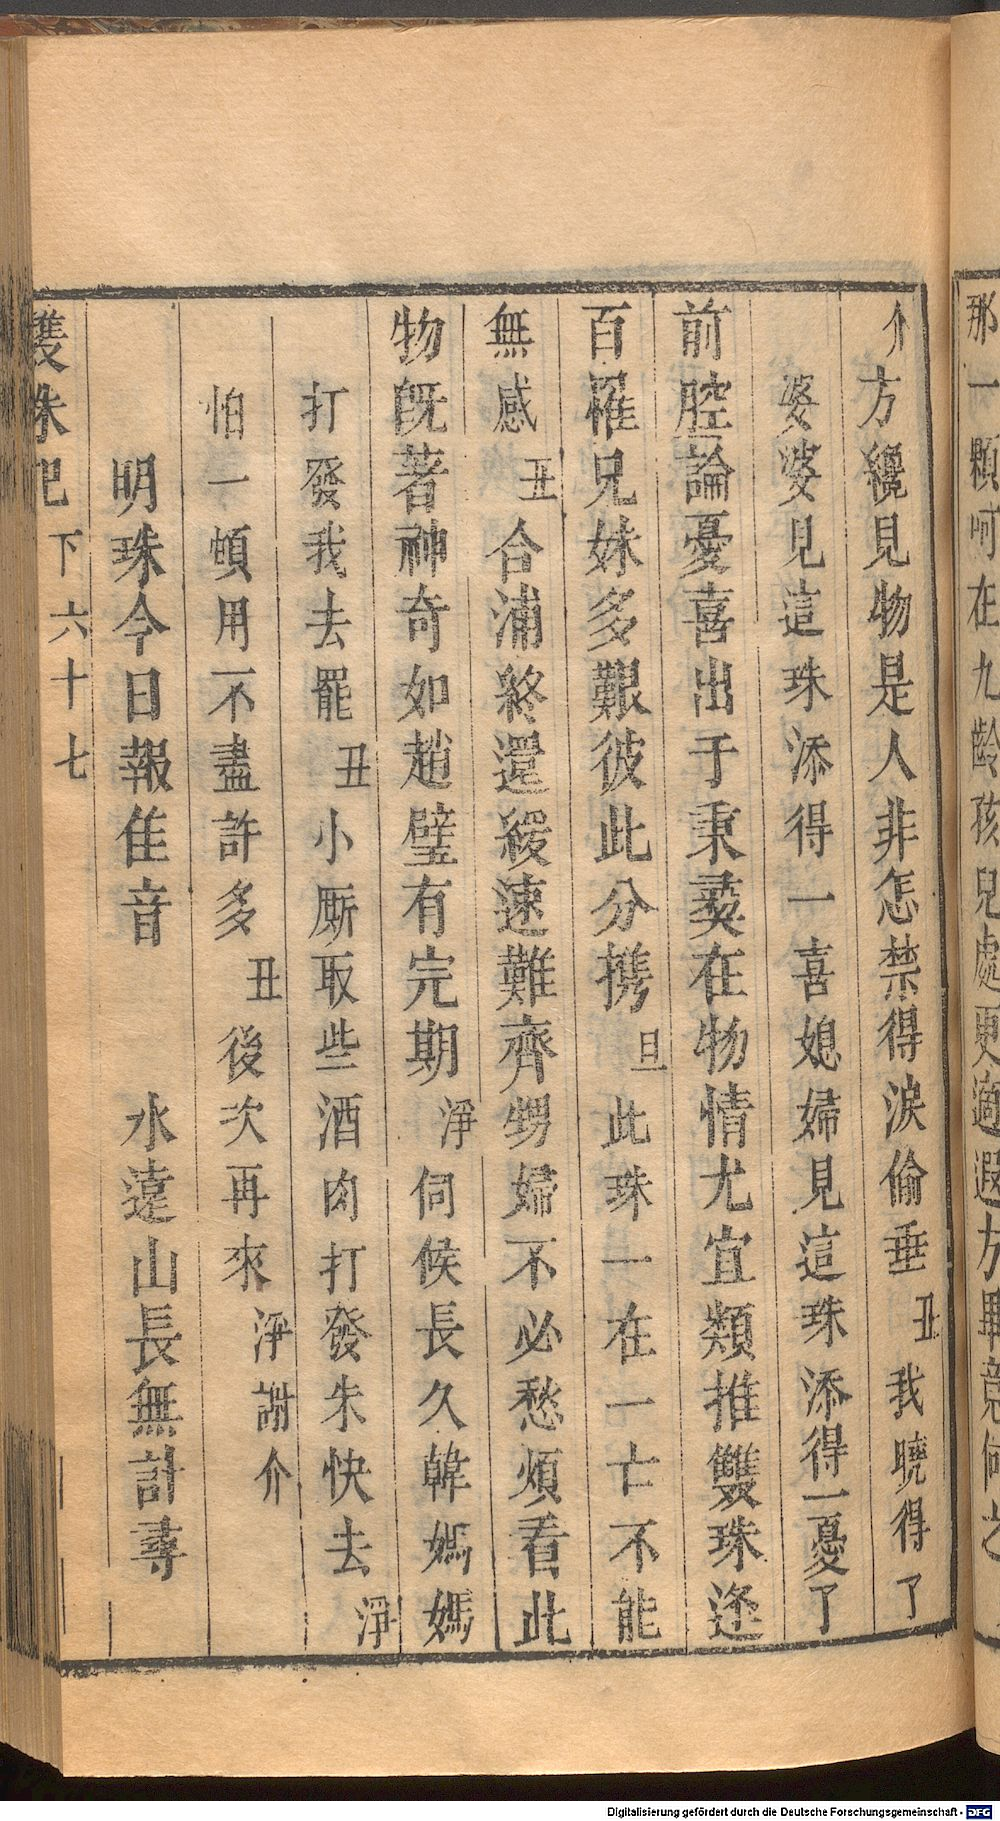 那一顆呵在九齡孩兒處更適遐方畢竟何之
介方纔見物是人非怎禁得淚偷垂丑我曉得了
婆婆見這珠添得一喜媳婦見這珠添得一憂了
前腔論憂喜出于秉彝在物情尤宜類推雙珠逢
百罹兄妹多艱彼此分携旦此珠一在一亡不能
無感丑合浦終還緩速難齊甥婦不必愁煩看此
物旣著神奇如趙璧有完期淨伺候長久韓媽媽
打發我去罷丑小厮取些酒肉打發朱快去淨
怕一頓用不盡許多丑後次再來淨謝介
明珠今日報佳音 水遠山長無計尋
雙珠記 下 六十七
Digitalisierung gefördert durch die Deutsche Forschungsgemeinschaft - DFG